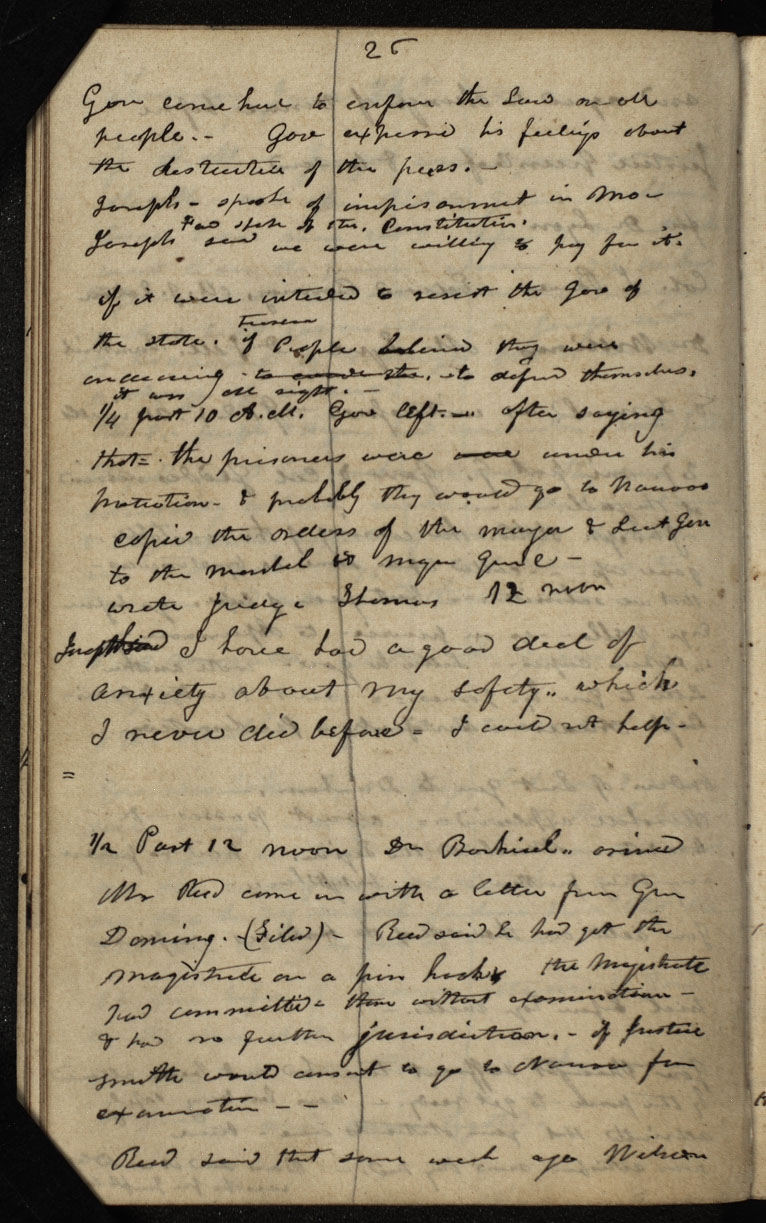 25
Gov come here to enforce the Laws on all
people.- Gov expressed his feelings about
the destruction of the press.-
Joseph - spoke of imprisonment in Mo-
& of the. Constitution.
Joseph said we were willing to pay for it.
if it were intended to resist the Gov of
the state.
treason
if People believed they were
to defend themselves.
it was all right.-
1/4 past 10 A.M. Gov left.- after saying
that= the prisoners were under his
protection- & probably they would go to Nauvoo
copied the orders of the mayor & Lieut Gen
to the marshal & major Genl -
wrote Judge Thomas 12 noon
Joseph said I have had a good deal of
anxiety about my safety.. which
I never did before= I could not help-
=
1/2 Past 12 noon Dr Berhisel.. arrived
Mr Reed came in with a letter from Gen
Deming. (Filed) - Reed said he had got the
magistrate on a pin hook the Majistrate
had committed them without examination -
& had no further jurisdiction.- if Justice
smith would consent to go to Nauvoo for
examination - -
Reed said that some week ago Wilson